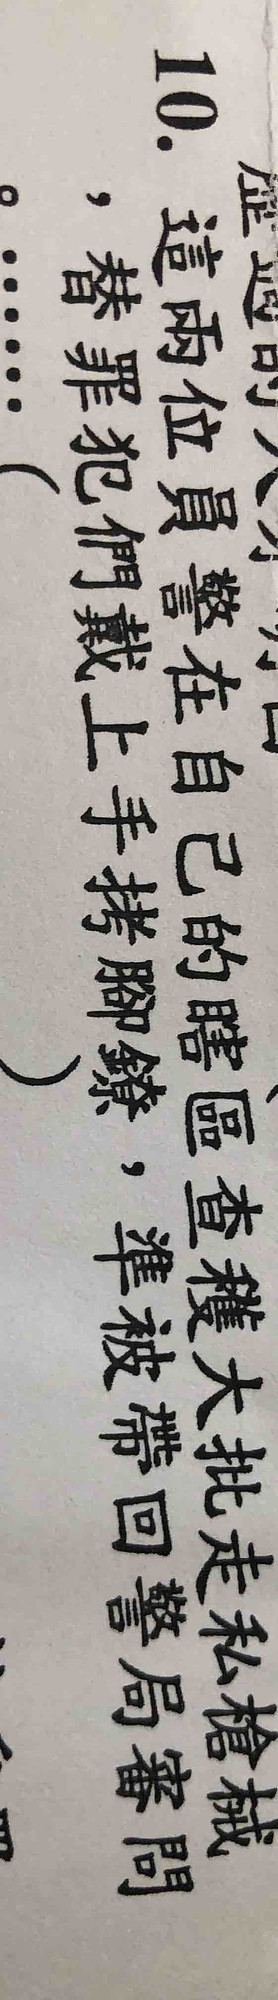 10. 這兩位員警在自己的瞎區查穫大批走私槍械
，替罪犯們戴上手拷腳鐐，準被帶回警局審問
。……（　）